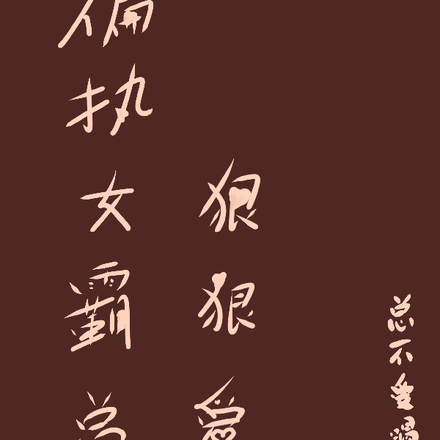 偏执女霸总
狠狠爱
总不爱喝